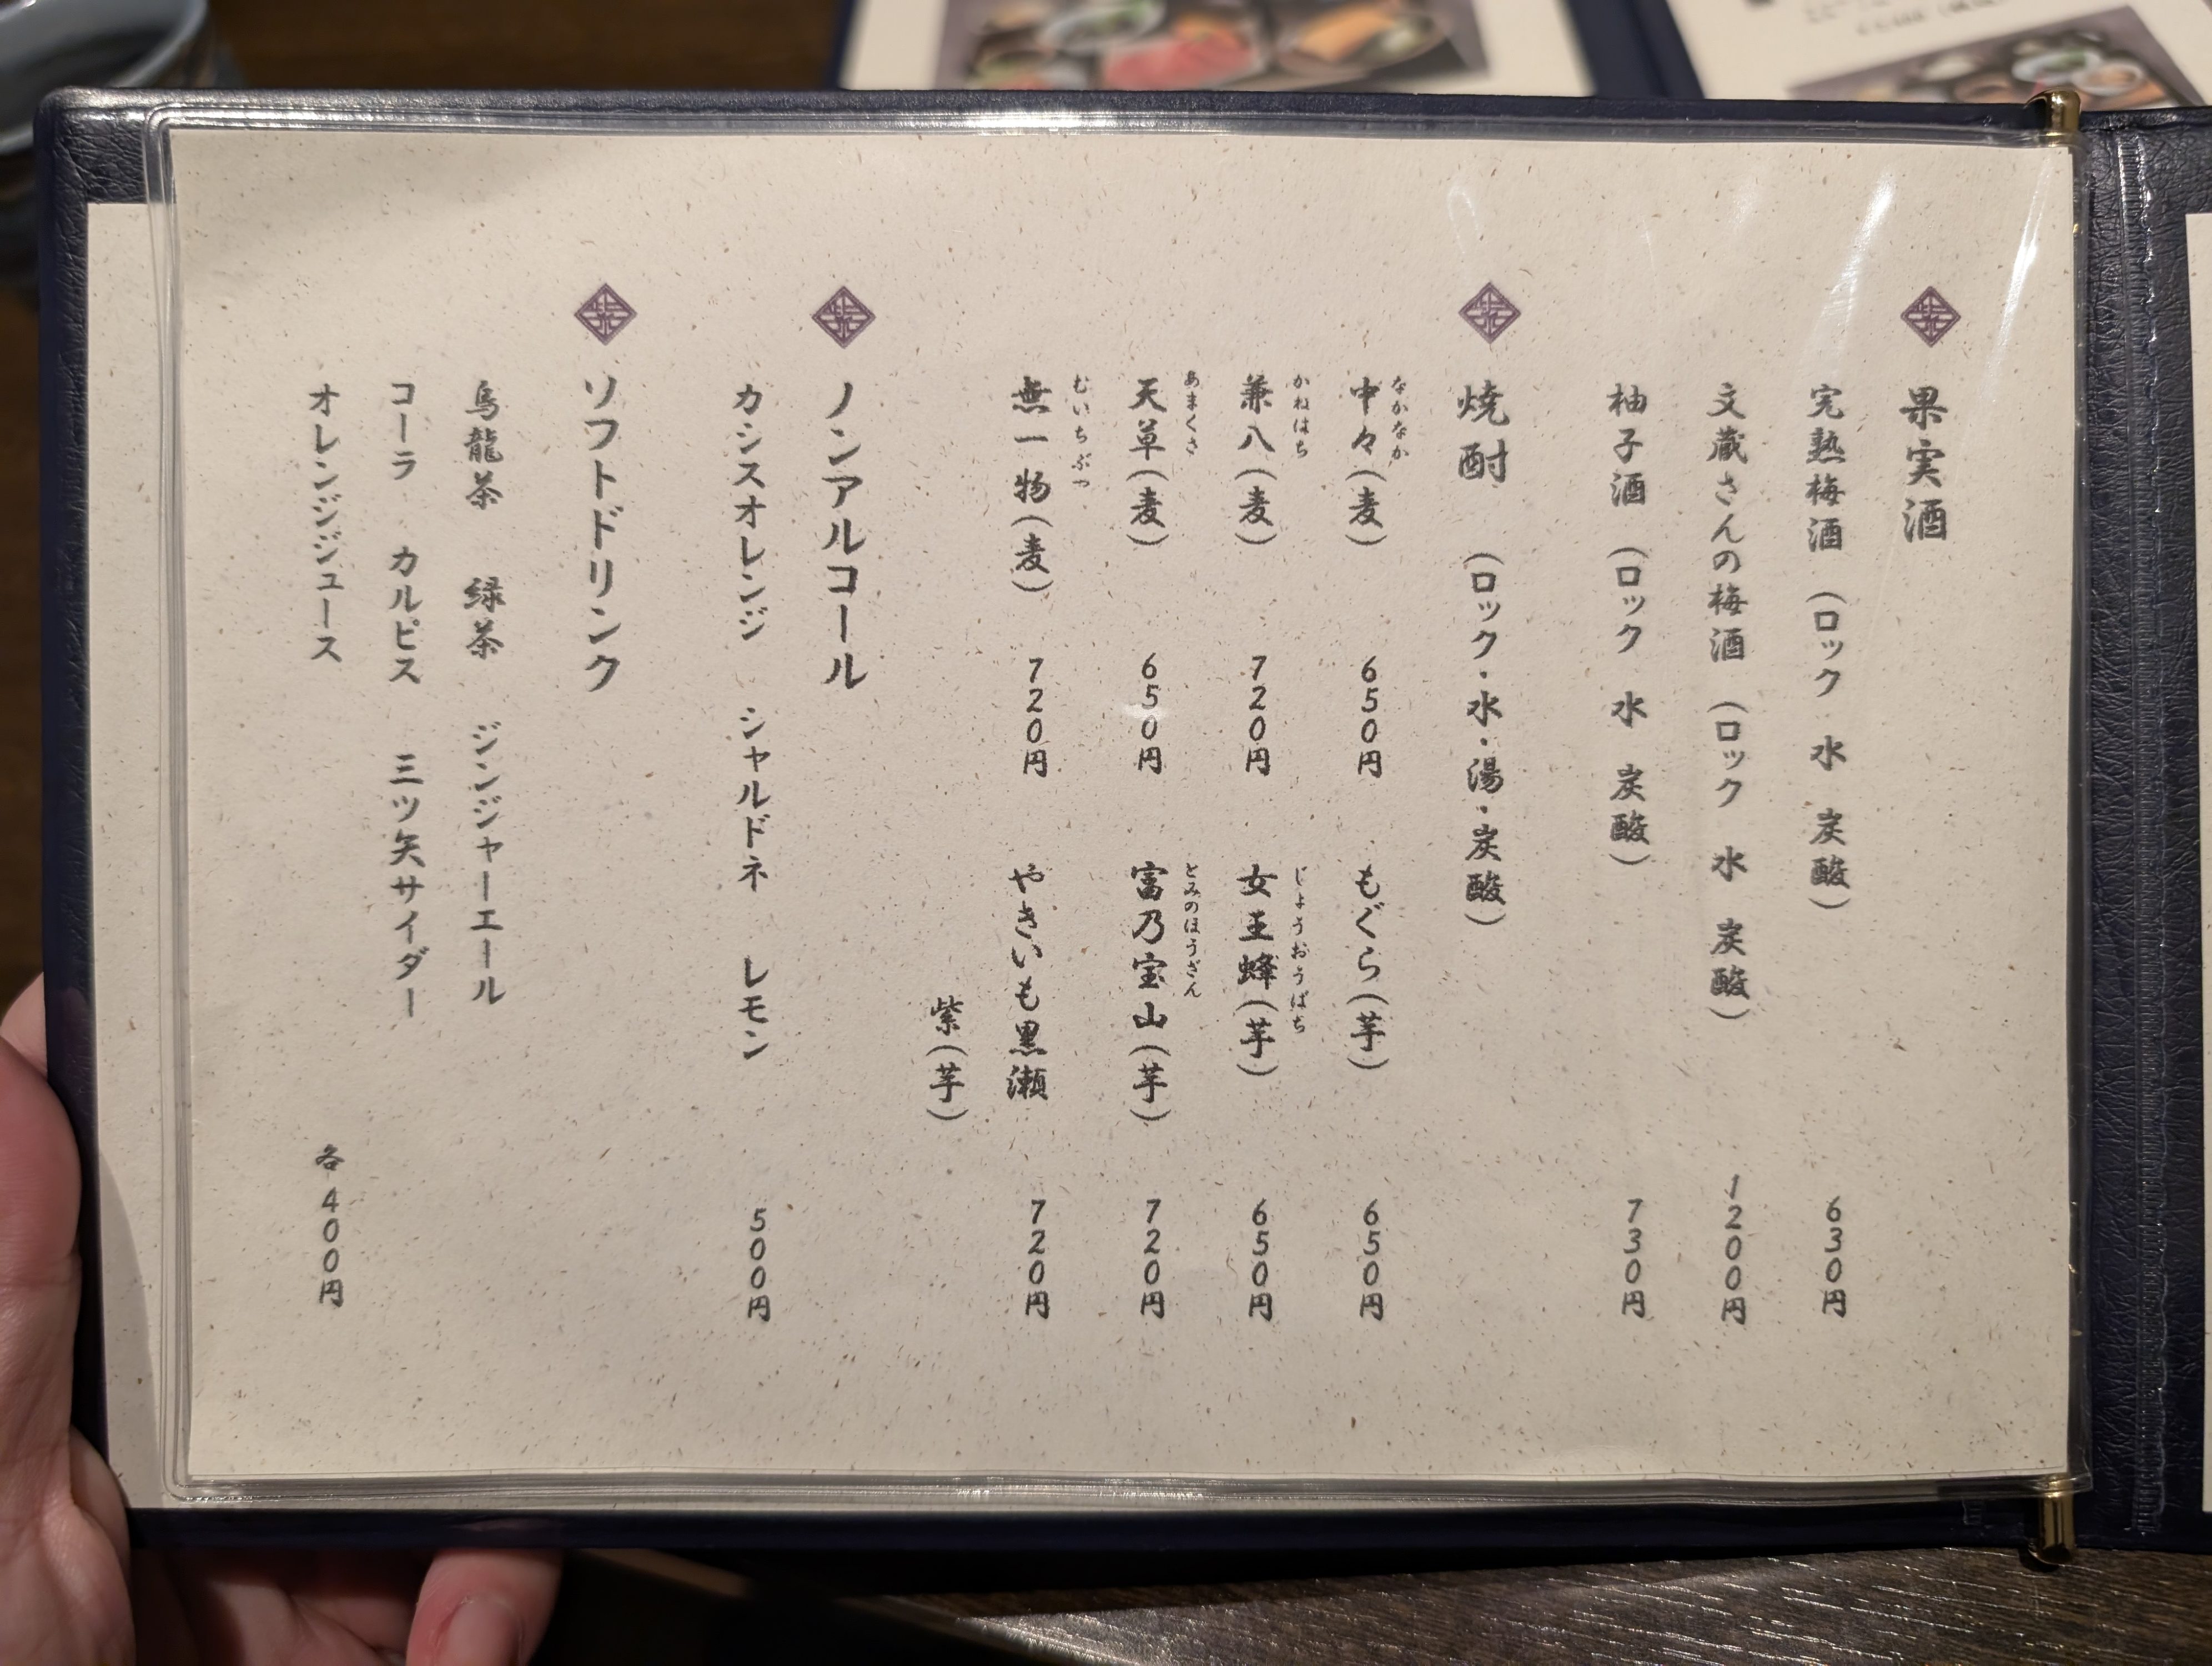 果実酒
完熟梅酒（ロック　水　炭酸）　630円
文蔵さんの梅酒（ロック　水　炭酸）　1200円
柚子酒（ロック　水　炭酸）　730円
焼酎　（ロック・水・湯・炭酸）
なかなか
中々（麦）　650円　もぐら（芋）　650円
かねはち　じょうおうばち
兼八（麦）　720円　女王蜂（芋）　650円
あまくさ　とみのほうざん
天草（麦）　650円　富乃宝山（芋）　720円
むいちぶつ
無一物（麦）　720円　やきいも黒瀬　720円
紫（芋）
ノンアルコール
カシスオレンジ　シャルドネ　レモン　500円
ソフトドリンク
烏龍茶　緑茶　ジンジャーエール
コーラ　カルピス　三ツ矢サイダー
オレンジジュース　各400円